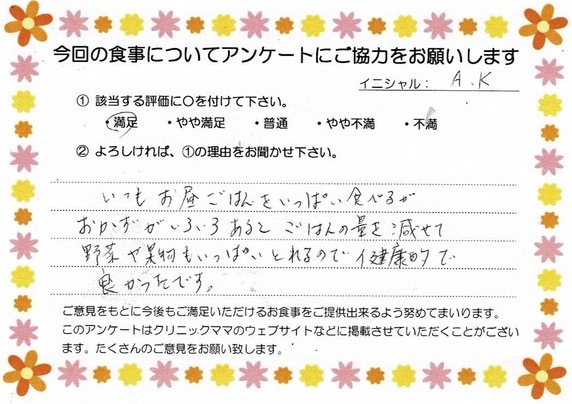 今回の食事についてアンケートにご協力をお願いします
イニシャル： A.K
① 該当する評価に○を付けて下さい。
・満足 ・やや満足 ・普通 ・やや不満 ・不満
② よろしければ、①の理由をお聞かせ下さい。
いつもお昼ごはんをいっぱい食べるが
おかずがいろいろあると ごはんの量を減せて
野菜や果物もいっぱいとれるので健康的で
良かったです。
ご意見をもとに今後もご満足いただけるお食事をご提供出来るよう努めてまいります。
このアンケートはクリニックママのウェブサイトなどに掲載させていただくことがござい
ます。たくさんのご意見をお願い致します。